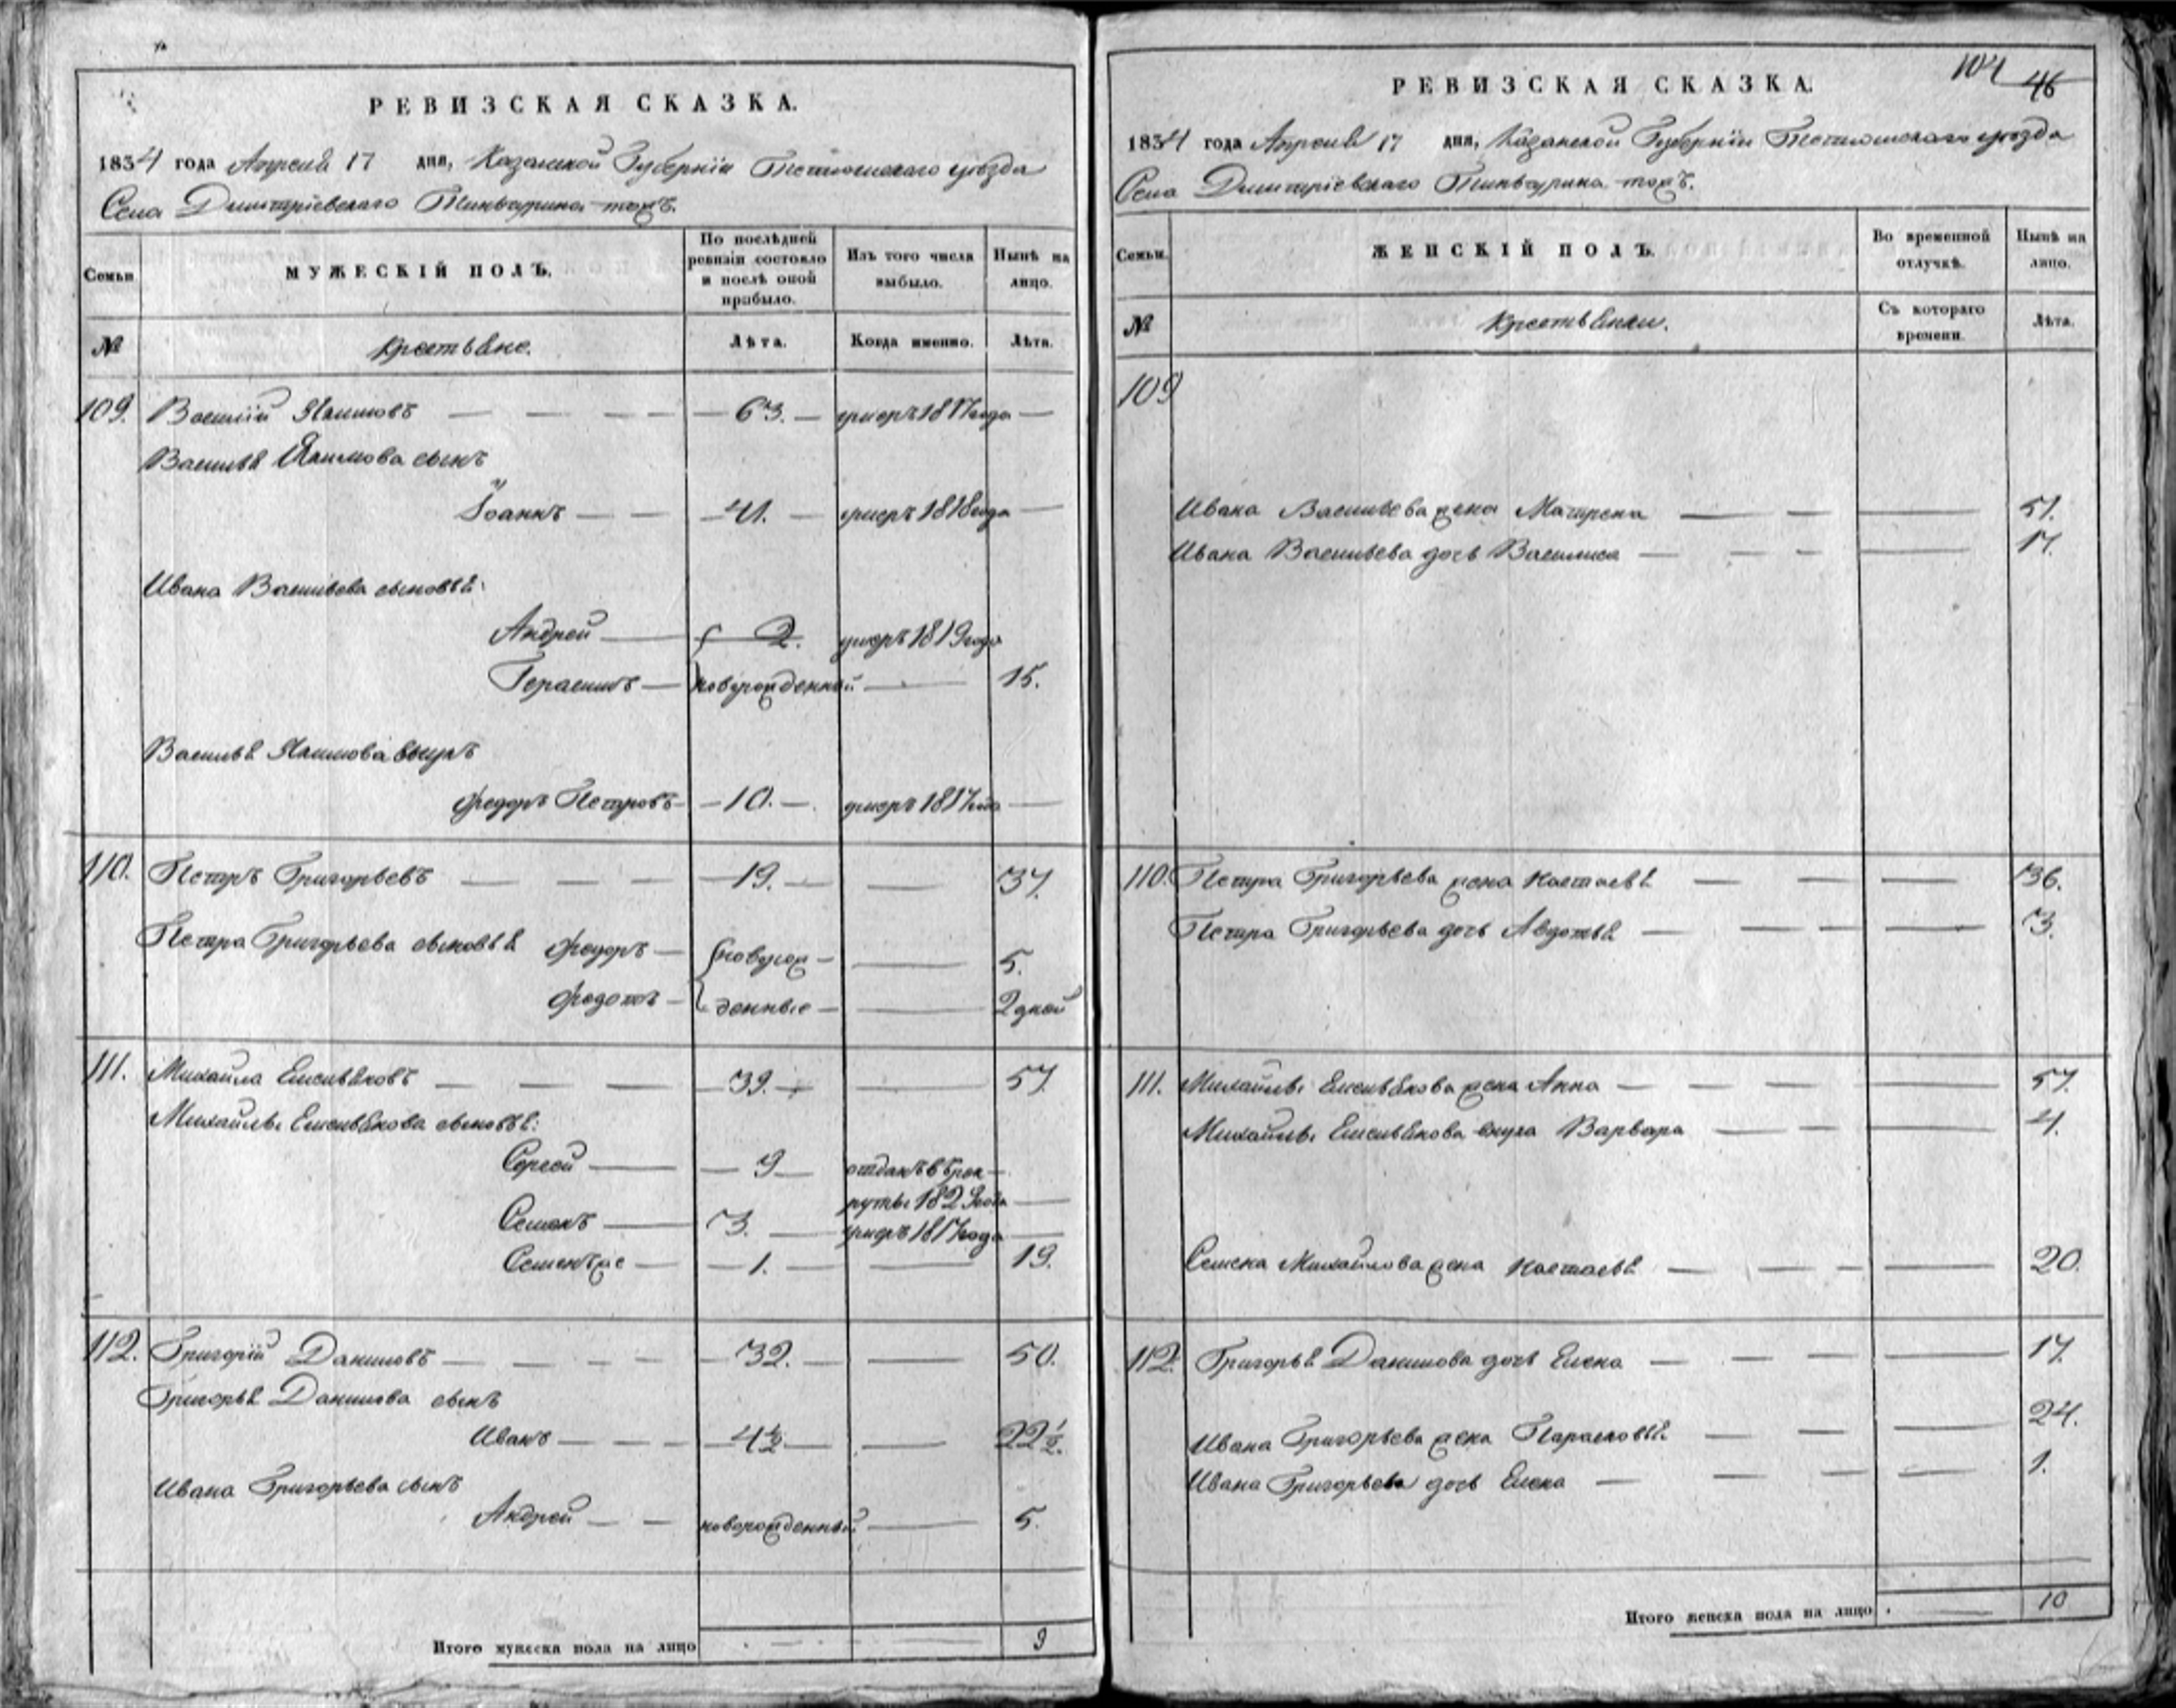 РЕВИЗСКАЯ СКАЗКА.
1834 года Апреля 17 дня, Казанской Губернiи Тетюшскаго уѣзда
Села Димитрiевскаго Тинбурина тожъ.
Семьи
МУЖЕСКIЙ ПОЛЪ.
По послѣдней ревизiи состояло и послѣ оной прибыло.
Изъ того числа выбыло.
Нынѣ на лицо.
№
Крестьяне.
Лѣта.
Когда именно.
Лѣта.
109. Василiй Якимовъ — — — — 63. — умеръ 1817 года —
Василья Якимова сынъ
Iоаннъ — — — 41. — умеръ 1818 года —
Ивана Васильева сыновья:
Андрей — 2. умеръ 1819 года
Герасимъ — новорожденный — 15.
Василья Якимова внукъ
Федоръ Петровъ — 10. — умеръ 1817 года —
110. Петръ Григорьевъ — — — — 19. — — 37.
Петра Григорьева сыновья Федоръ — новорож — — 5.
Федотъ — денные — — 2 дней
111. Михайла Емельяновъ — — — — 39. — — 57.
Михайлы Емельянова сыновья:
Сергей — — 9 — отданъ в рек-
руты 1829 года —
Семенъ — 3. — умеръ 1817 года —
Семенъ же — — 1. — — 19.
112. Григорiй Даниловъ — — — — 32. — — 50.
Григорья Данилова сынъ
Иванъ — — — 4 1/2 — — 22 1/2.
Ивана Григорьева сынъ
Андрей — — новорожденный — 5.
Итого мужеска пола на лицо — — 9
104 46
РЕВИЗСКАЯ СКАЗКА.
1834 года Апреля 17 дня, Казанской Губернiи Тетюшскаго уѣзда
Села Димитрiевскаго Тинбурина тожъ.
Семьи.
ЖЕНСКIЙ ПОЛЪ.
Во временной отлучкѣ.
Нынѣ на лицо.
№
Крестьянки.
Съ котораго времени.
Лѣта.
109
Ивана Васильева жена Матрена — — — 51.
Ивана Васильева дочь Василиса — — — — 17.
110. Петра Григорьева жена Настасья — — — 36.
Петра Григорьева дочь Авдотья — — — — 3.
111. Михайлы Емельянова жена Анна — — — — 57.
Михайлы Емельянова внука Варвара — — — 4.
Семена Михайлова жена Настасья — — — — 20.
112. Григорья Данилова дочь Елена — — — — 17.
Ивана Григорьева жена Парасковья — — — — 24.
Ивана Григорьева дочь Елена — — — — 1.
Итого женска пола на лицо — 10